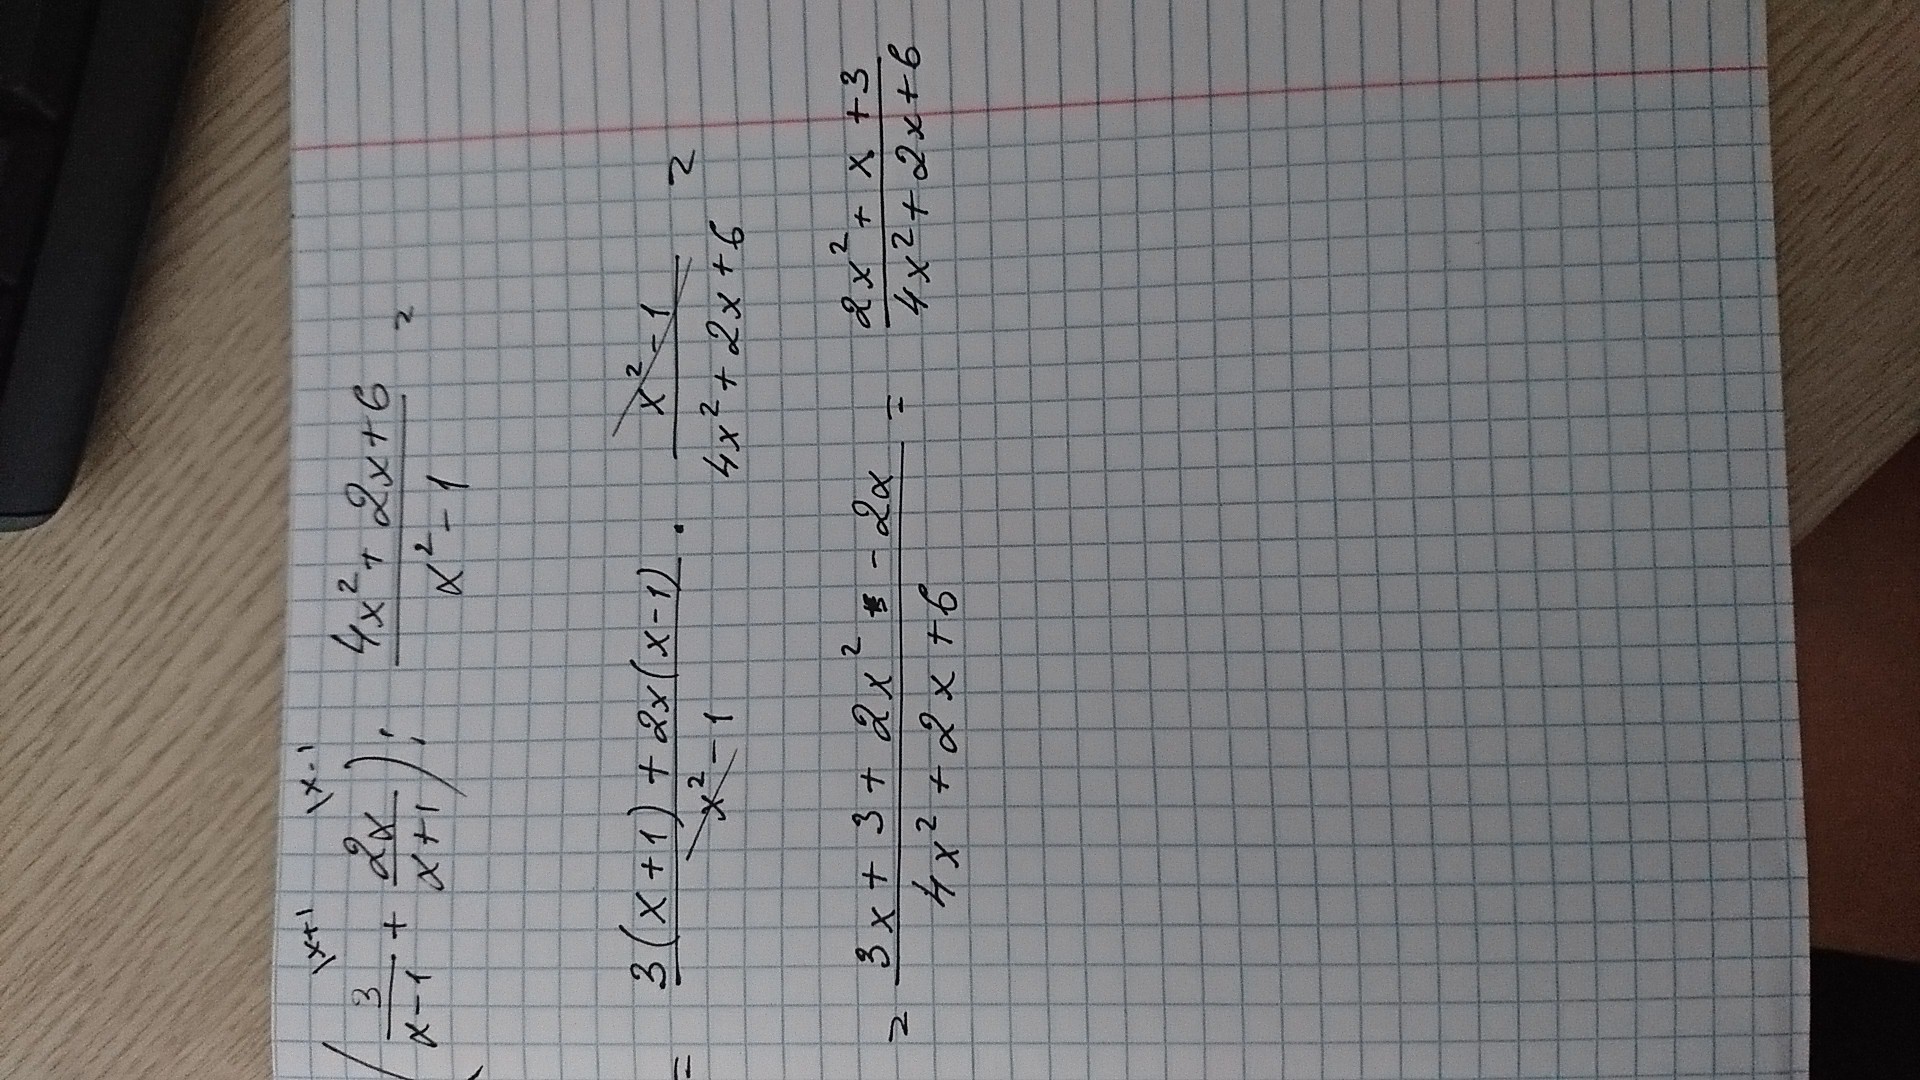 \x+1 \x-1
( 3/(x-1) + 2x/(x+1) ) : (4x² + 2x + 6)/(x² - 1) =
= (3(x+1) + 2x(x-1))/(x² - 1) · (x² - 1)/(4x² + 2x + 6) =
= (3x + 3 + 2x² - 2x)/(4x² + 2x + 6) = (2x² + x + 3)/(4x² + 2x + 6)